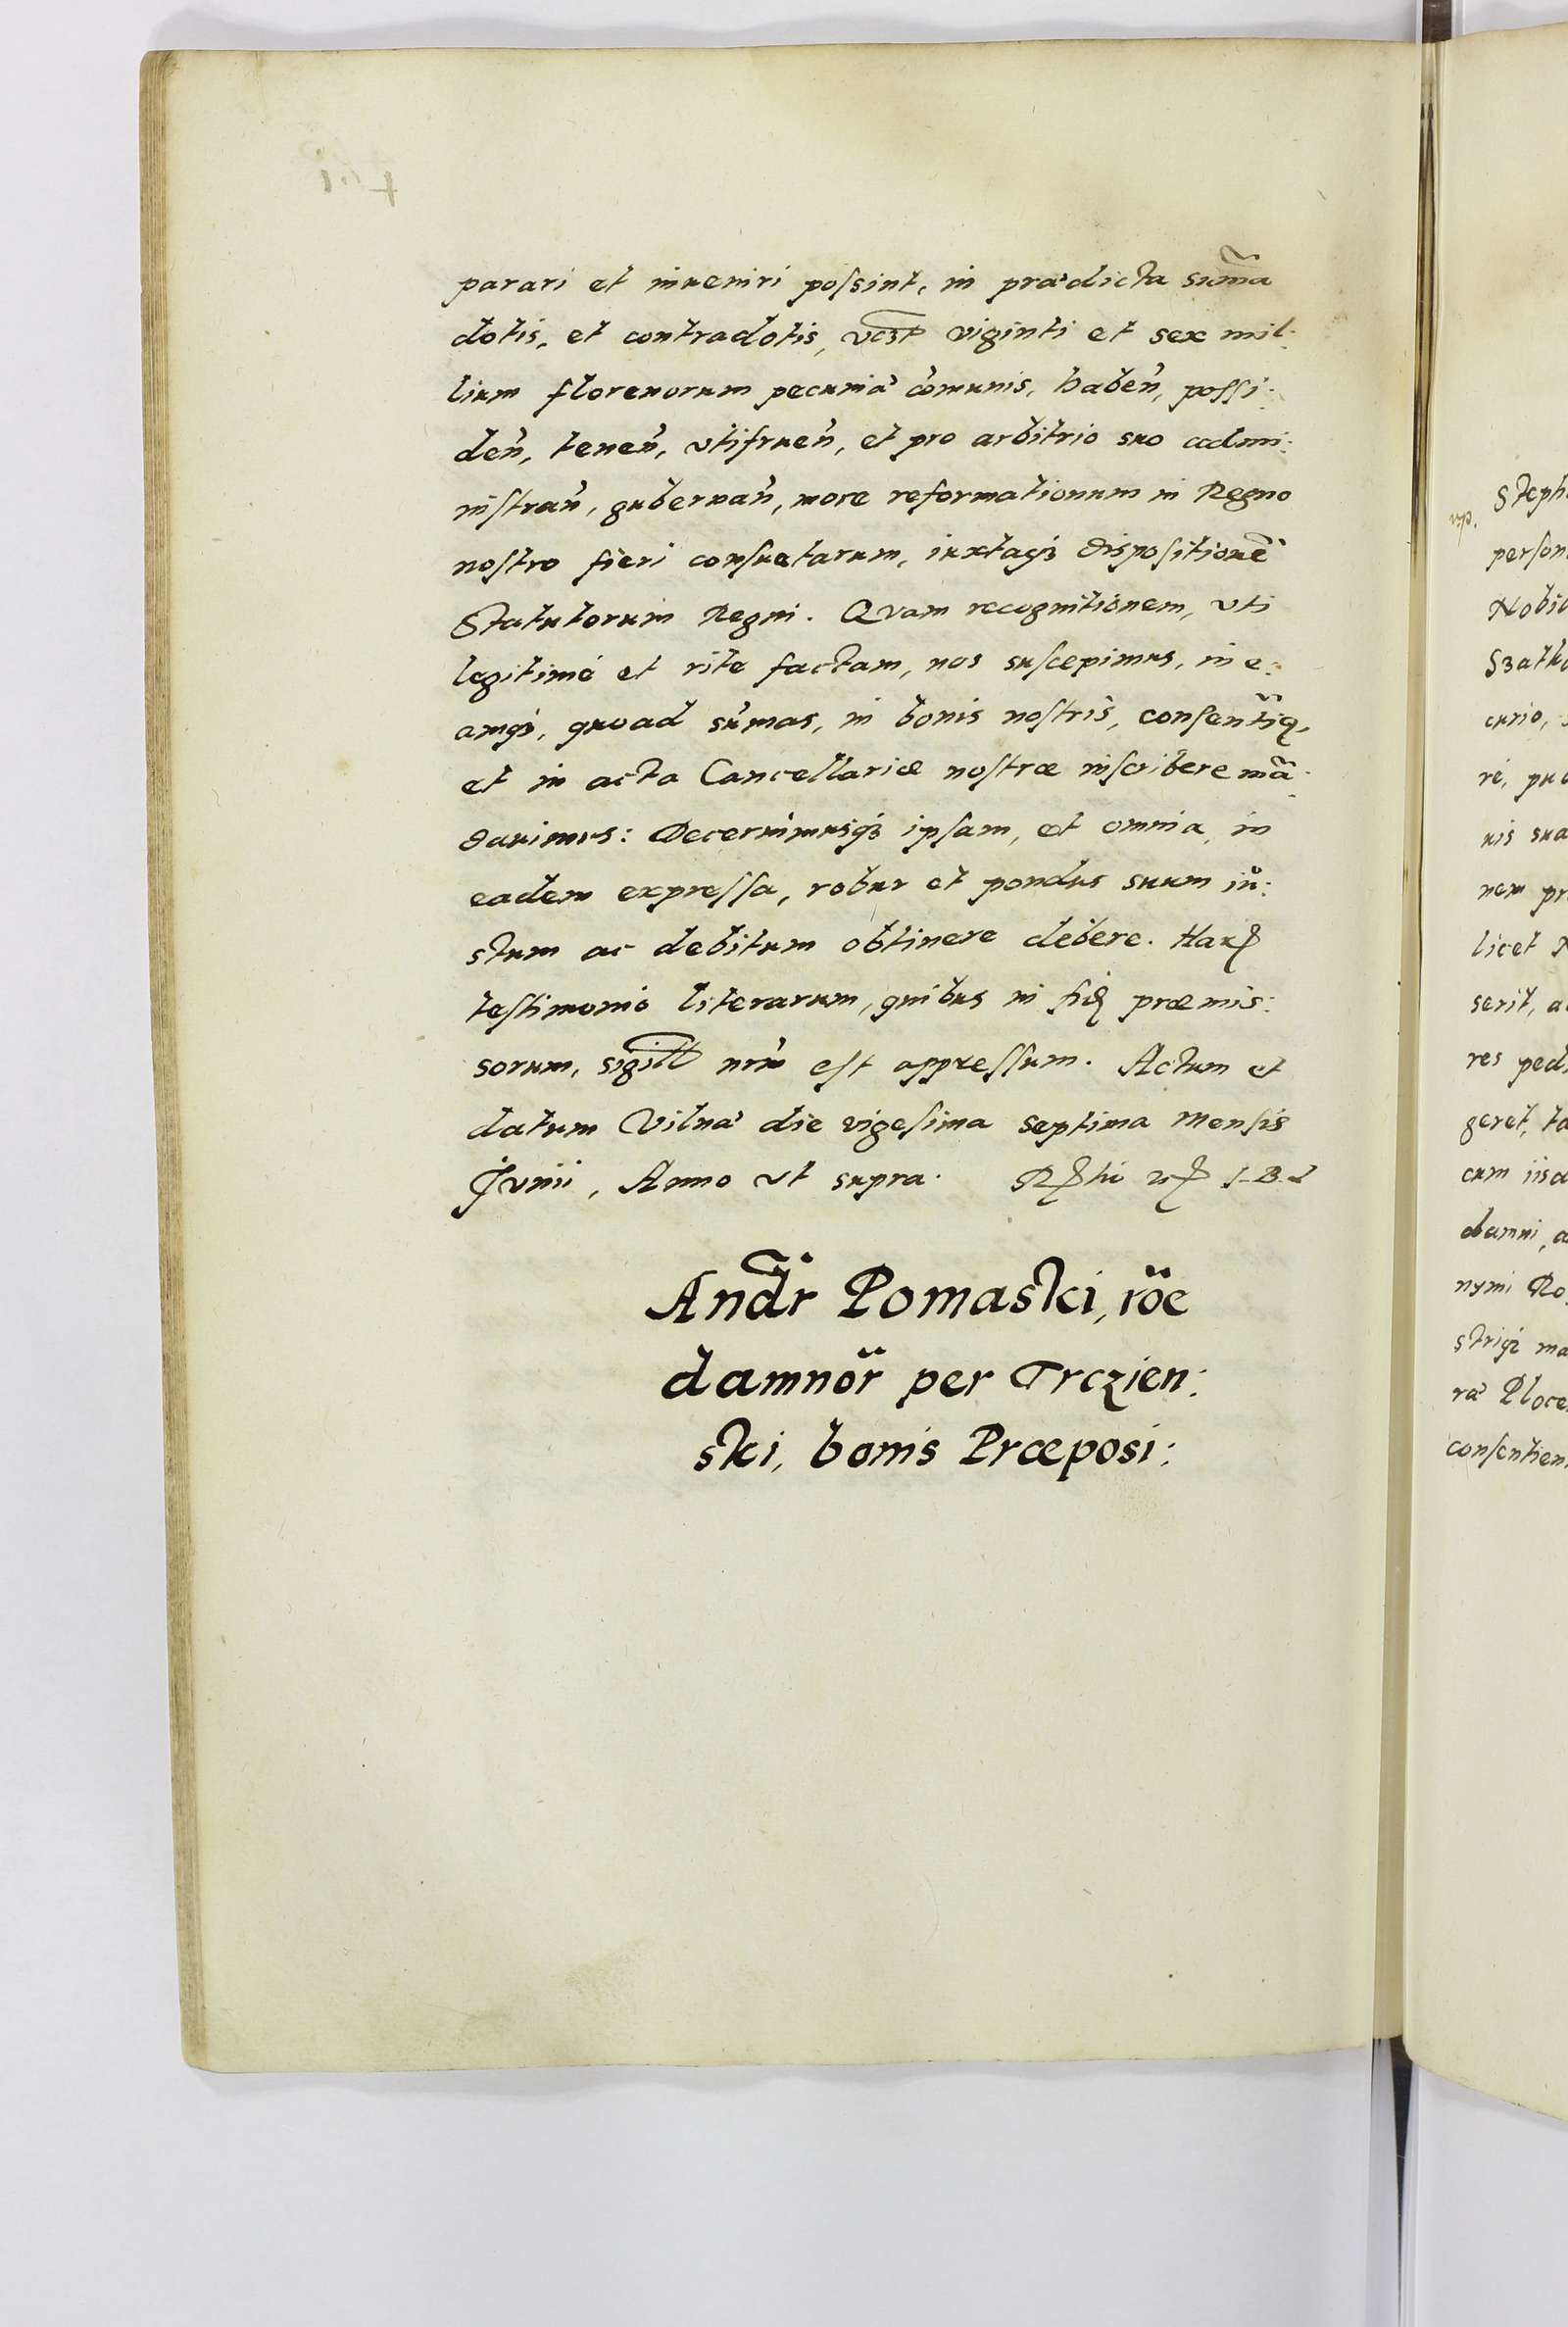 parari et inueniri possint, in prædicta sum̃a
dotis, et contradotis, vczt viginti et sex mil:
lium florenorum pecuniæ com̃unis, haben̄, possi:
den̄, tenen̄, vtifruen̄, et pro arbitrio suo admi:
nistran̄, gubernan̄, more reformationum in Regno
nostro fieri consuetarum, iuxtaq3 dispositionẽ
Statutorum Regni. Quam recognitionem, vti
legitimè et rite factam, nos suscepimus, in e:
amq3, quoad sum̃as, in bonis nostris,
et in acta Cancellariæ nostræ inscribere mã:
dauimus: Decernimusq3 ipsam, et omnia, in
eadem expressa, robur et pondus suum iu:
stum ac debitum obtinere debere. Har
testimonio literarum, quibus in fid præmis:
sorum, sigill nr̃m est appressum. Actum et
datum Vilnæ die vigesima septima Mensis
Junii, Anno vt supra.
Andr Pomaski, rõe
damnor̃ per Trczien:
ski, bonis Præposi:
Steph
perſon
Nobil
Szatk
curio,
nis sua
nem pr
licet
serit, a
res ped
geret, ta
cum iisd
damni, a
nymi Ro
striq3 ma
ræ Ploce
consentien